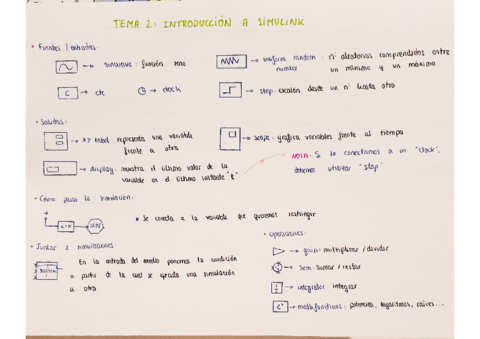 TEMA 2: INTRODUCCIÓN A SIMULINK
• Fuentes / entradas:
→ sinewave: función seno
→ uniform random number → nº aleatorios comprendidos entre un mínimo y un máximo
C → cte
→ clock
→ step: escalón desde un nº hasta otro
• Salidas:
→ XY
representa una variable
frente a otra
→ scope: gráfica variables frente al tiempo
→ display: muestra el último valor de la
variable en el último instante "t"
NOTA: Si lo conectamos a un "clock",
debemos utilizar "stop"
• Cómo parar la simulación:
STOP
* Se conecta a la variable que queremos restringir
• Juntar 2 simulaciones:
En la entrada del medio ponemos la condición
a partir de la cual se ejecuta una simulación
u otra
• Operaciones:
→ gain: multiplicar / dividir
→ sum: sumar / restar
→ integrator: integrar
→ math functions: potencias, logaritmos, raíces...